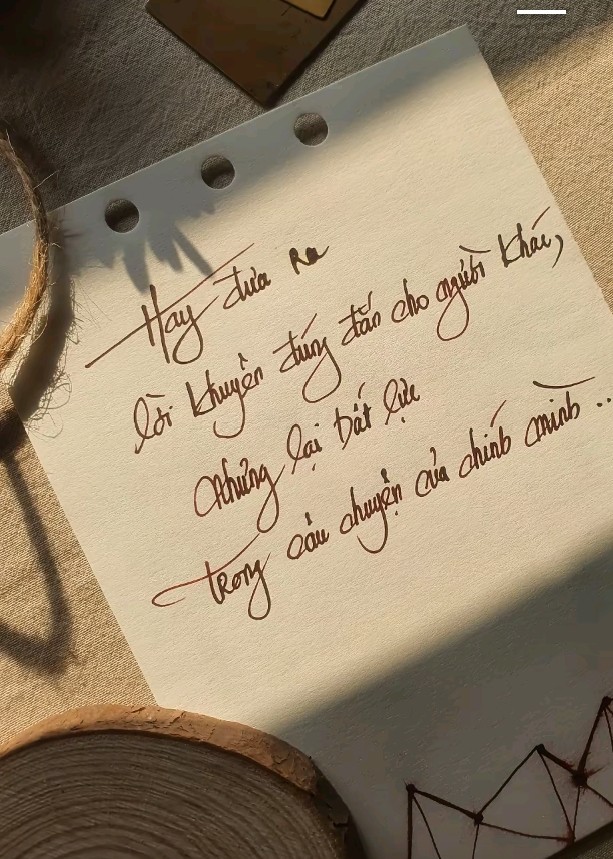 Hay đưa ra
lời khuyên đúng đắn cho người khác,
nhưng lại bất lực
trong câu chuyện của chính mình ...